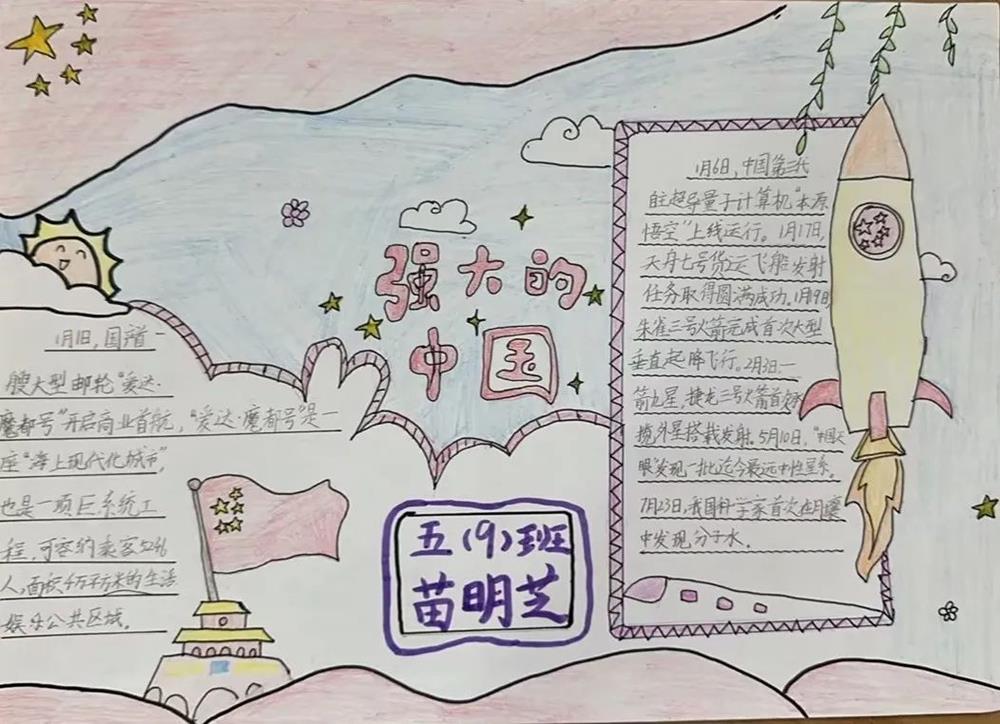 强大的
中国
1月1日,国产首一
艘大型邮轮“爱达·
魔都号”开启商业首航,“爱达·魔都号”是一
座“海上现代化城市”,
也是一项巨系统工
程,可容纳乘客5246
人,面积4万平方米的生活
娱乐公共区域。
五(9)班
苗明芝
1月6日,中国第三代
自主超导量子计算机“本源
悟空”上线运行。1月17日,
天舟七号货运飞船发射
任务取得圆满成功。1月19日
朱雀三号火箭完成首次大型
垂直起降飞行。2月3日一
箭九星,捷龙三号火箭首次承
揽外星搭载发射。5月10日,“中国天
眼”发现一批迄今最远中性星系。
7月23日,我国科学家首次在月壤
中发现分子水。